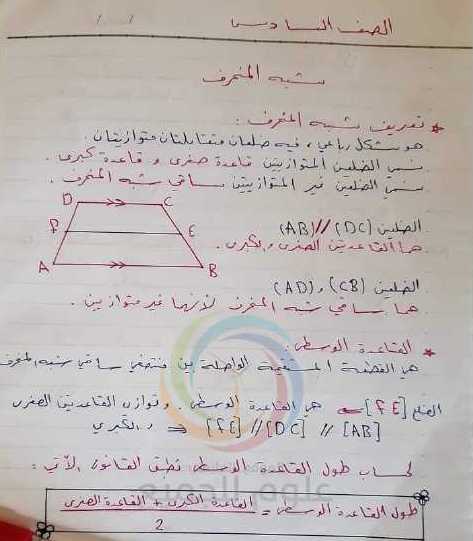 الصف السادس
/ /
شبه المنحرف
* تعريف شبه المنحرف :
هو شكل رباعي، فيه ضلعان متقابلتان متوازيتان.
نسمي الضلعين المتوازيتين قاعدة صغرى و قاعدة كبرى.
نسمي الضلعين غير المتوازيتين ساقي شبه المنحرف.
D C
الضلعين (DC) // (AB)
F E
هما القاعدتين الصغرى والكبرى.
A B
الضلعين (CB) , (AD)
هما ساقي شبه المنحرف لأنهما غير متوازيين.
* القاعدة الوسطى :
هي القطعة المستقيمة الواصلة بين منتصفي ساقي شبه المنحرف
الضلع [FE] هي القاعدة الوسطى. وتوازي القاعدتين الصغرى
والكبرى ⇒ [FE] // [DC] // [AB]
لحساب طول القاعدة الوسطى نطبق القانون الآتي :
علوم للجميع
طول القاعدة الوسطى = القاعدة الكبرى + القاعدة الصغرى
2